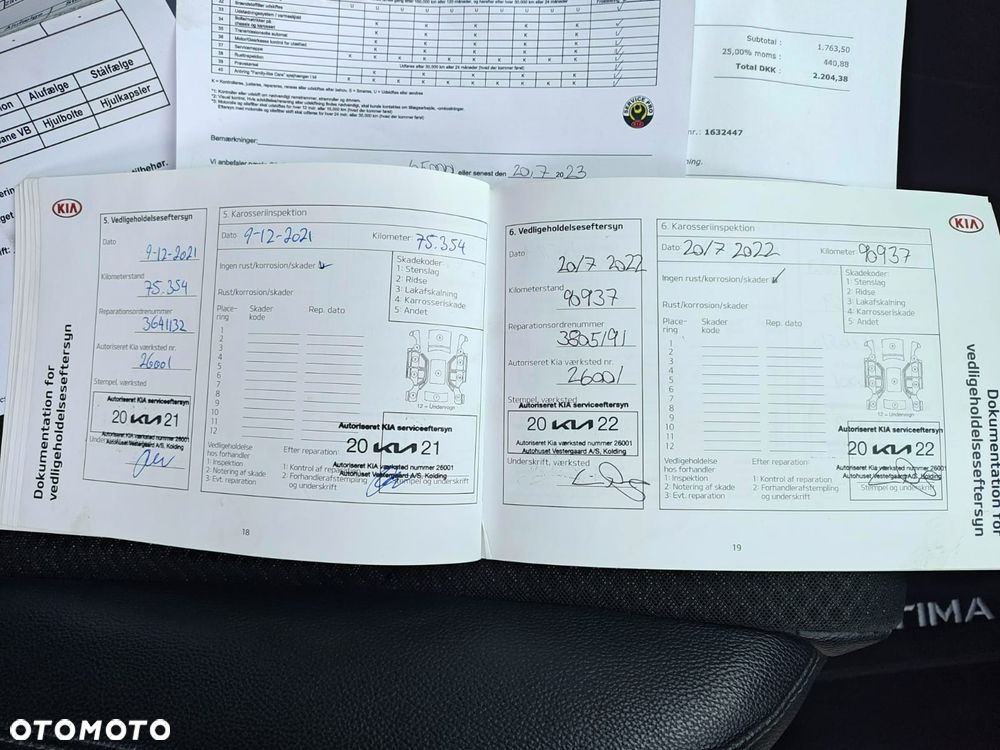 Stålfælge
Alufælge
Hjulkapsler
Hjulbolte
Subtotal : 1.763,50
25,00% moms : 440,88
Total DKK : 2.204,38
nr.: 1632447
Bemærkninger:
eller senest den 20/7 2023
SERVICE PRO
KIA
5. Vedligeholdelseseftersyn
Dato
9-12-2021
Kilometerstand
75.354
Reparationsordrenummer
3641132
Autoriseret Kia værksted nr.
26001
Stempel, værksted
Autoriseret KIA serviceeftersyn
20 KIA 21
Autoriseret KIA værksted nummer 26001
Autohuset Vestergaard A/S, Kolding
5. Karosseriinspektion
Dato 9-12-2021 Kilometer 75.354
Ingen rust/korrosion/skader
Rust/korrosion/skader
Place-ring Skader kode Rep. dato
1
2
3
4
5
6
7
8
9
10
11
12
Skadekoder:
1: Stenslag
2: Ridse
3: Lakafskalning
4: Karrosseriskade
5: Andet
12 = Undervogn
Vedligeholdelse hos forhandler
1: Inspektion
2: Notering af skade
3: Evt. reparation
Efter reparation:
1: Kontrol af reparation
2: Forhandlerafstempling og underskrift
Autoriseret KIA serviceeftersyn
20 KIA 21
Autoriseret KIA værksted nummer 26001
Autohuset Vestergaard A/S, Kolding
Stempel og underskrift
Dokumentation for vedligeholdelseseftersyn
18
6. Vedligeholdelseseftersyn
Dato
20/7 2022
Kilometerstand
90937
Reparationsordrenummer
3805191
Autoriseret Kia værksted nr.
26001
Stempel, værksted
Autoriseret KIA serviceeftersyn
20 KIA 22
Autoriseret KIA værksted nummer 26001
Autohuset Vestergaard A/S, Kolding
Underskrift, værksted
6. Karosseriinspektion
Dato 20/7 2022 Kilometer 90937
Ingen rust/korrosion/skader
Rust/korrosion/skader
Place-ring Skader kode Rep. dato
1
2
3
4
5
6
7
8
9
10
11
12
Skadekoder:
1: Stenslag
2: Ridse
3: Lakafskalning
4: Karrosseriskade
5: Andet
12 = Undervogn
Vedligeholdelse hos forhandler
1: Inspektion
2: Notering af skade
3: Evt. reparation
Efter reparation:
1: Kontrol af reparation
2: Forhandlerafstempling og underskrift
Autoriseret KIA serviceeftersyn
20 KIA 22
Autoriseret KIA værksted nummer 26001
Autohuset Vestergaard A/S, Kolding
Stempel og underskrift
KIA
Dokumentation for vedligeholdelseseftersyn
19
TIMA
OTOMOTO